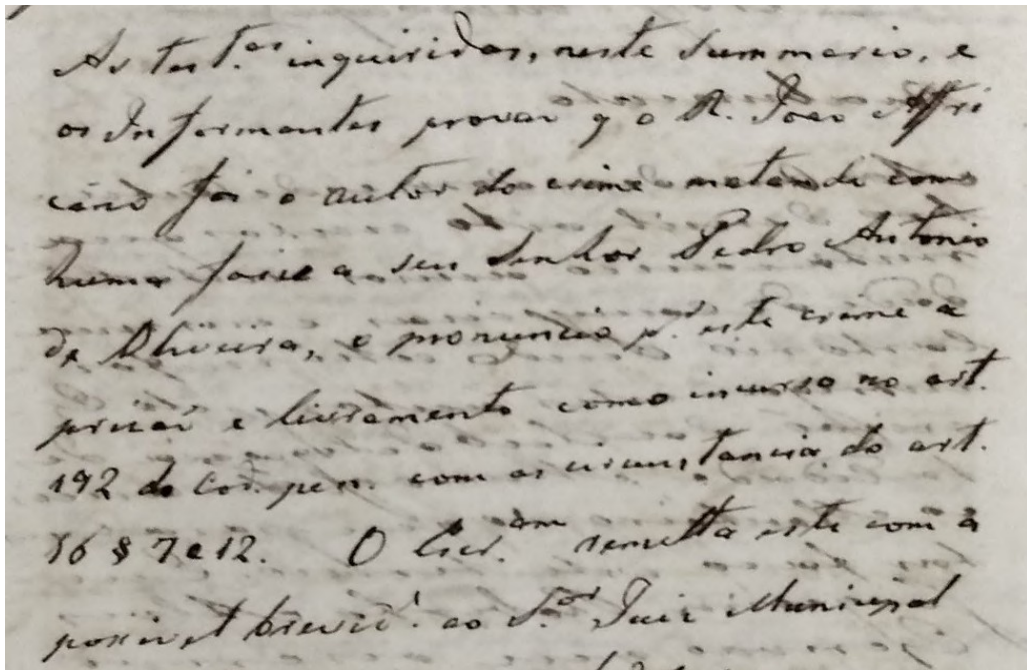 As test.as inquiridas, neste Summario, e
os Informantes provão q o R. João Affri
cano foi o autor do crime matando com
huma foice a seu Senhor Pedro Antonio
de Oliveira, e pronuncio p.r este crime a
prizaõ e livramento como incurso no art.
192 do Cod. pen. com as circunstancia do art.
16 § 7 e 12. O Escr.am remetta este com a
possivel brevid.e ao S.or Juiz Municipal